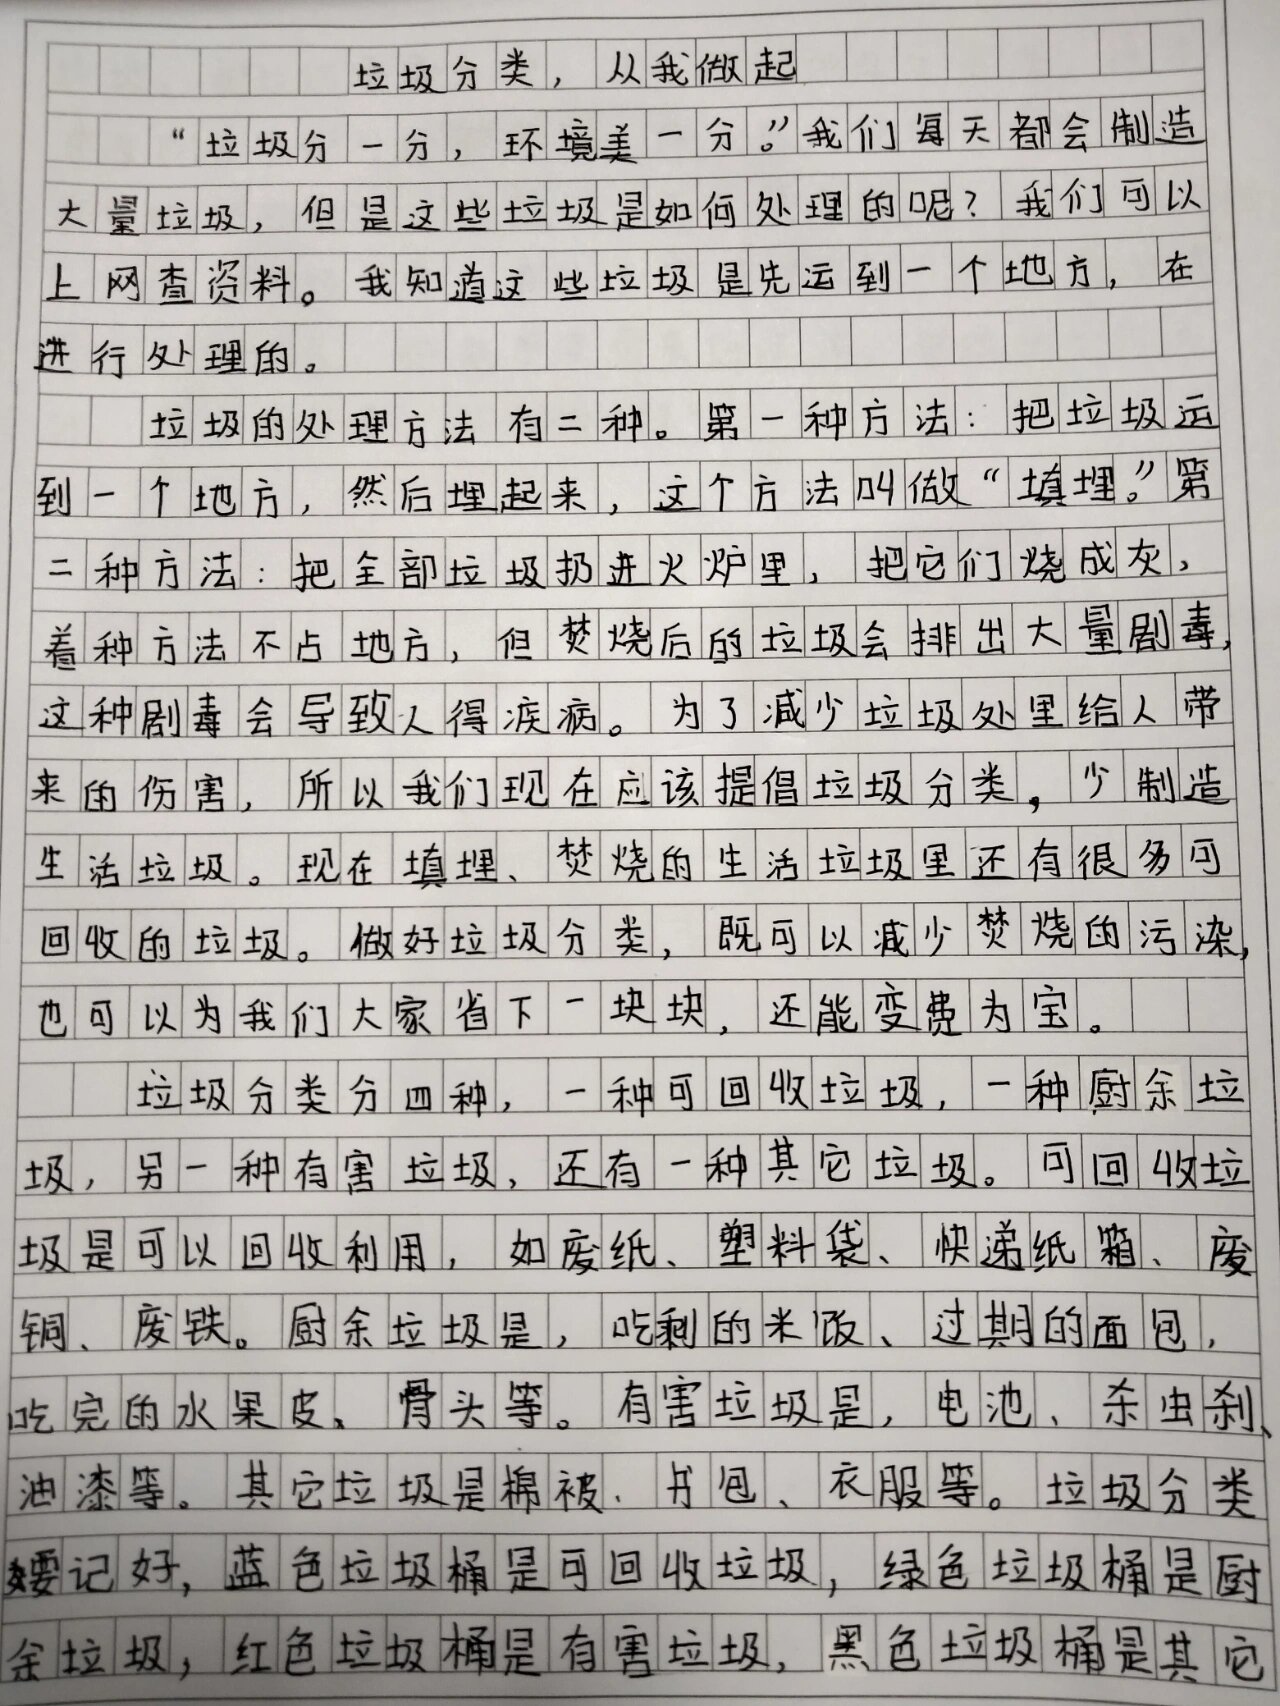 垃圾分类，从我做起
“垃圾分一分，环境美一分。”我们每天都会制造
大量垃圾，但是这些垃圾是如何处理的呢？我们可以
上网查资料。我知道这些垃圾是先运到一个地方，在
进行处理的。
垃圾的处理方法有二种。第一种方法：把垃圾运
到一个地方，然后埋起来，这个方法叫做“填埋。”第
二种方法：把全部垃圾扔进火炉里，把它们烧成灰，
着种方法不占地方，但焚烧后的垃圾会排出大量剧毒，
这种剧毒会导致人得疾病。为了减少垃圾处里给人带
来的伤害，所以我们现在应该提倡垃圾分类，少制造
生活垃圾。现在填埋、焚烧的生活垃圾里还有很多可
回收的垃圾。做好垃圾分类，既可以减少焚烧的污染，
也可以为我们大家省下一块块，还能变费为宝。
垃圾分类分四种，一种可回收垃圾，一种厨余垃
圾，另一种有害垃圾，还有一种其它垃圾。可回收垃
圾是可以回收利用，如废纸、塑料袋、快递纸箱、废
铜、废铁。厨余垃圾是，吃剩的米饭、过期的面包，
吃完的水果皮、骨头等。有害垃圾是，电池、杀虫刹、
油漆等。其它垃圾是棉被、书包、衣服等。垃圾分类
要记好，蓝色垃圾桶是可回收垃圾，绿色垃圾桶是厨
余垃圾，红色垃圾桶是有害垃圾，黑色垃圾桶是其它